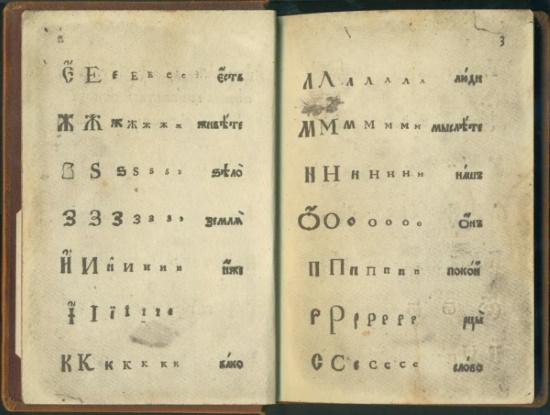 Є҆ Е Е Е Е е е є҆сть
Ж Ж ж ж ж ж ж живѣ́те
Ѕ Ѕ ѕ ѕ ѕ ѕ ѕѣлѡ̀
З З З з з з з землѧ̀
И҆ И и и и и и и҆́же
І҆ І ї і ї і і
К К к к к к к ка́кѡ
3
Л Л л л л л л лю́ди
М М м М м м м мыслѣ́те
Н Н н н н н н на́шъ
Ѻ҆ О о о о о о ѻ҆́нъ
П П п п п п п поко́й
Р Р р р р р р рцы̀
С С с с с с с сло́во